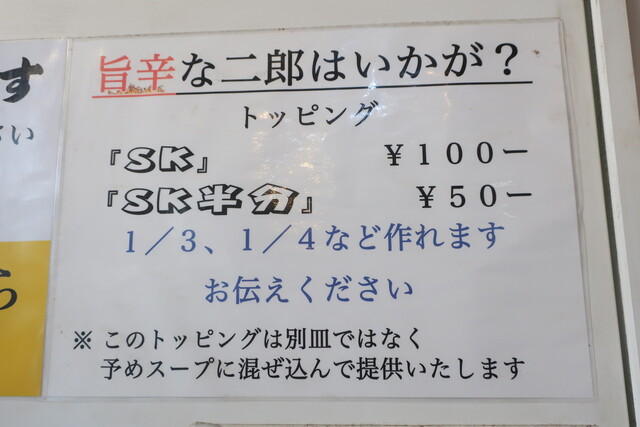 旨辛な二郎はいかが？
トッピング
『SK』 ￥１００ー
『SK半分』 ￥５０ー
１／３、１／４など作れます
お伝えください
※ このトッピングは別皿ではなく
予めスープに混ぜ込んで提供いたします
す
さい
ら